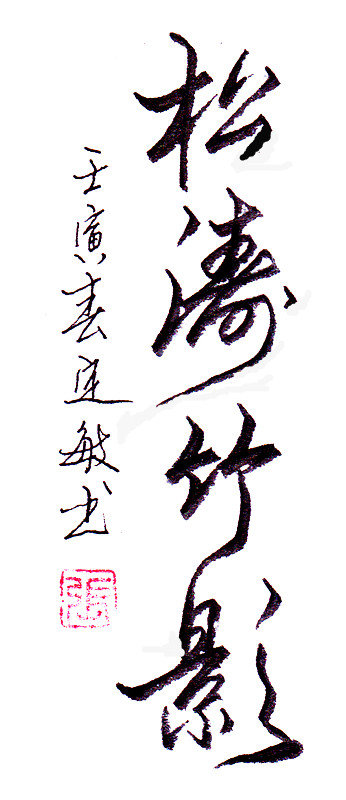 松濤竹影
壬寅春建敏书
張